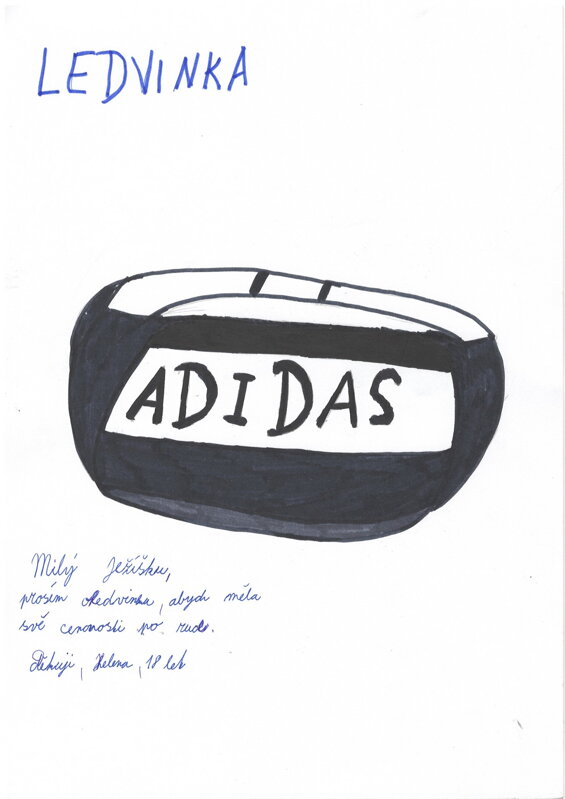 LEDVINKA
ADIDAS
Milý Ježíšku,
prosím o ledvinka, abych měla
své cennosti po ruce.
Děkuji, Helena, 18 let